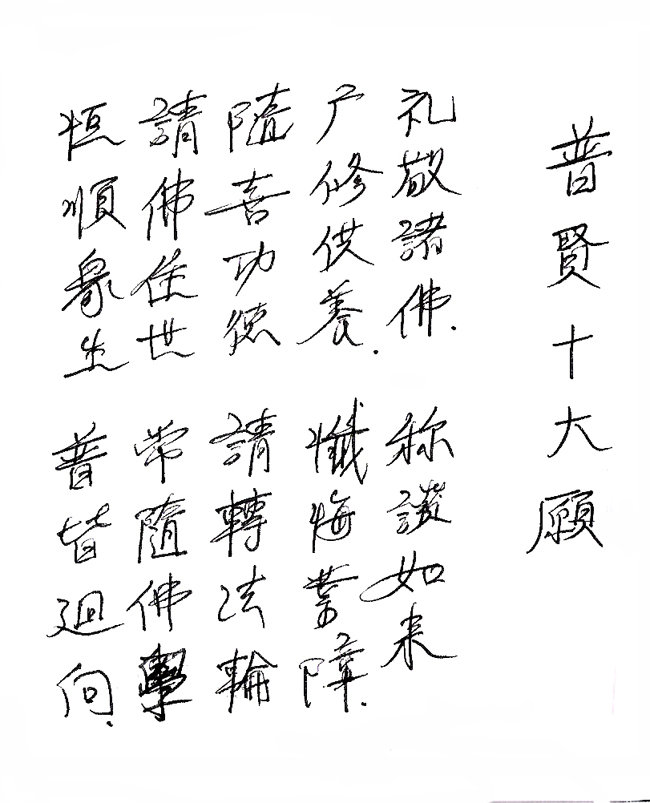 普賢十大願
礼敬諸佛. 称讃如来
广修供養. 懺悔業障.
隨喜功德 請轉法輪
請佛住世 常隨佛學
恒順眾生 普皆迴向.